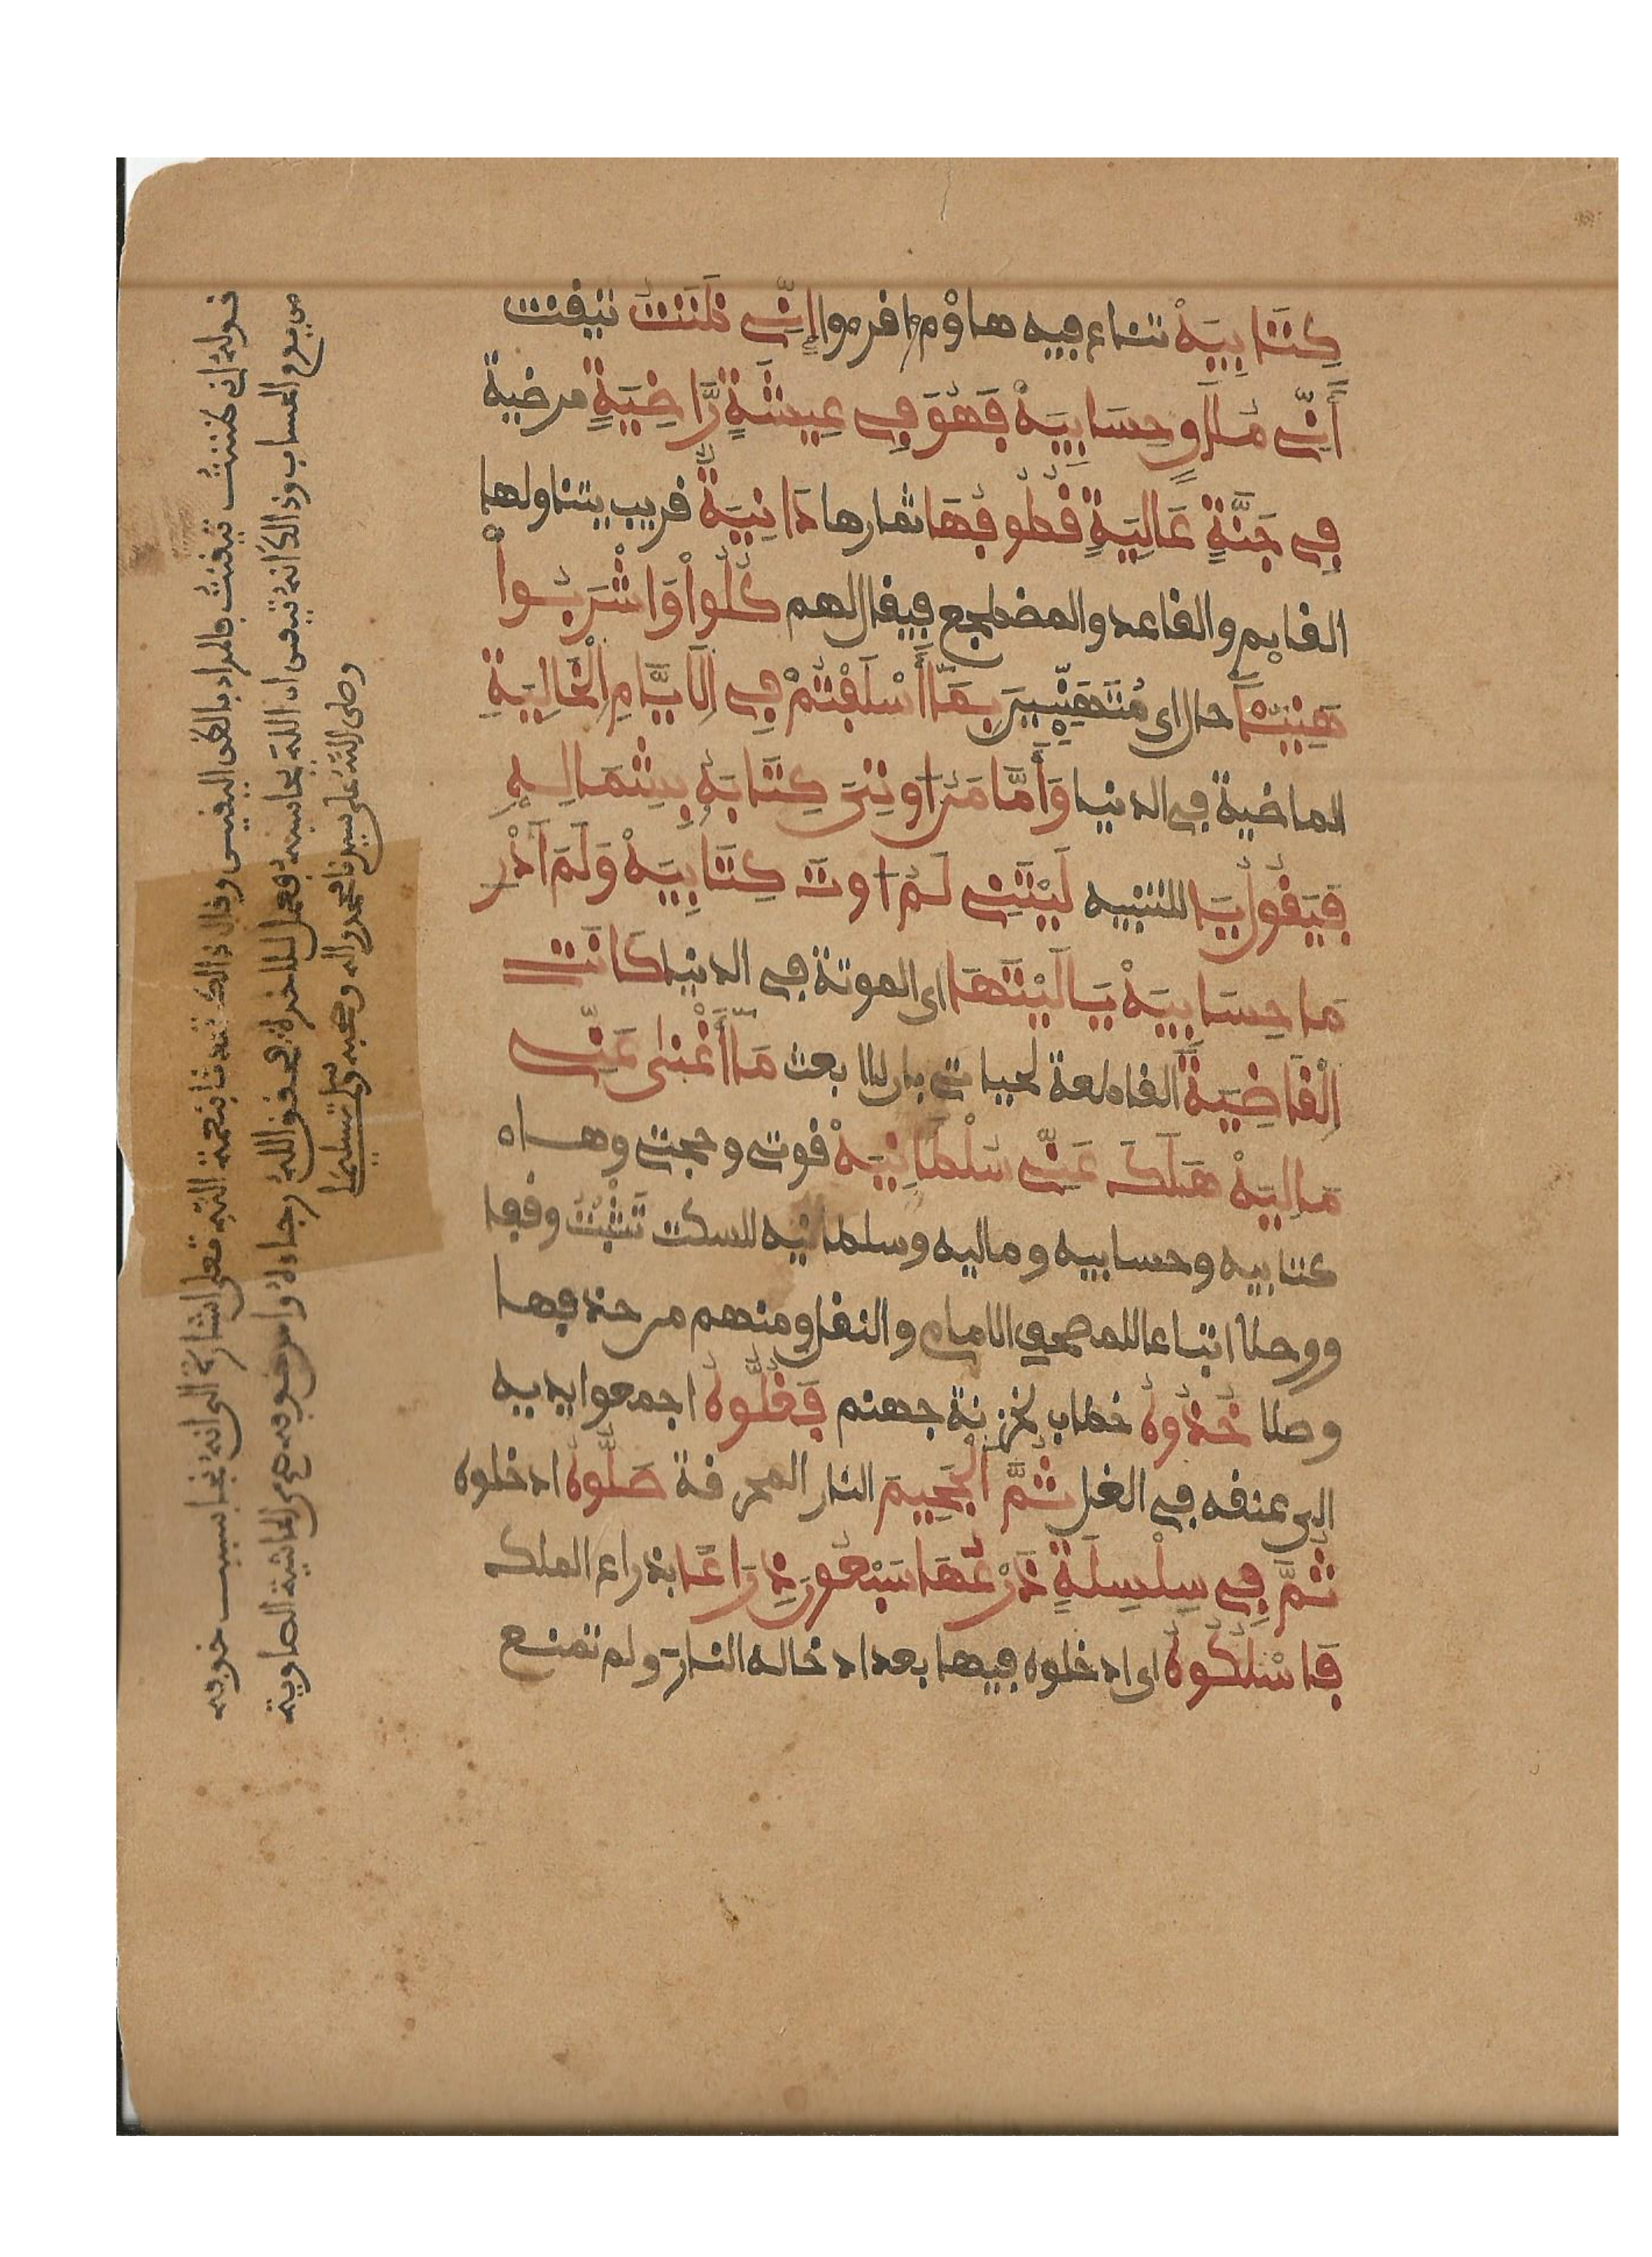 كِتَابِيَهْ تنازع فيه هاؤم و افرءوا إِنِّي ظَنَنتُ تيقنت
أَنِّي مُلَٰقٍ حِسَابِيَهْ فَهُوَ فِي عِيشَةٍ رَّاضِيَةٍ مرضية
فِي جَنَّةٍ عَالِيَةٍ قُطُوفُهَا ثمارها دَانِيَةٌ قريب يتناولها
القايم والقاعد والمضطجع فيقال لهم كُلُوا وَاشْرَبُوا
هَنِيـًٔا حال اى مُتَهَنِّيِينَ بِمَا أَسْلَفْتُمْ فِي الْأَيَّامِ الْخَالِيَةِ
الماضية في الدنيا وَأَمَّا مَنْ اُوتِيَ كِتَابَهُ بِشِمَالِهِ
فَيَقُولُ يَا للتنبيه لَيْتَنِي لَمُ اُوتَ كِتَابِيَهْ وَلَمَ اَدْرِ
مَا حِسَابِيَهْ يَا لَيْتَهَا اى الموتة في الدنيا كَانَتِ
الْقَاضِيَةَ القاطعة لحياتي بان لا ابعث مَا أَغْنَىٰ عَنِّي
مَالِيَهْ هَلَكَ عَنِّي سُلْطَانِيَهْ قوتي وحجتي وهاء
كتابيه وحسابيه وماليه وسلطانيه للسكت تَثْبُتُ وقفا
ووصلا اتباعا للمصحف الامام والنقل ومنهم من حذفها
وصلا خُذُوهُ خطاب لخزنة جهنم فَغُلُّوهُ اجمعوا يديه
الى عنقه في الغل ثُمَّ الْجَحِيمَ النار المحرقة صَلُّوهُ ادخلوه
ثُمَّ فِي سِلْسِلَةٍ ذَرْعُهَا سَبْعُونَ ذِرَاعًا بذراع الملك
فَاسْلُكُوهُ اى ادخلوه فيها بعد ادخاله النار ولم تمنع
قوله اني ظننتُ تيقنتُ فالمراد بالظن اليقين وقال ذالك تحدثا بنعمة الله تعلى اشارة الى انه نجا بسبب خوفه
من يوم الحساب وذالك انه تيقن ان الله يحاسبه فعمل للاخرة فحقق الله رجاءه وامن خوفه هى الحاشية الصاوية
وصلى الله على سيدنا محمد واله وصحبه وسلم تسليما